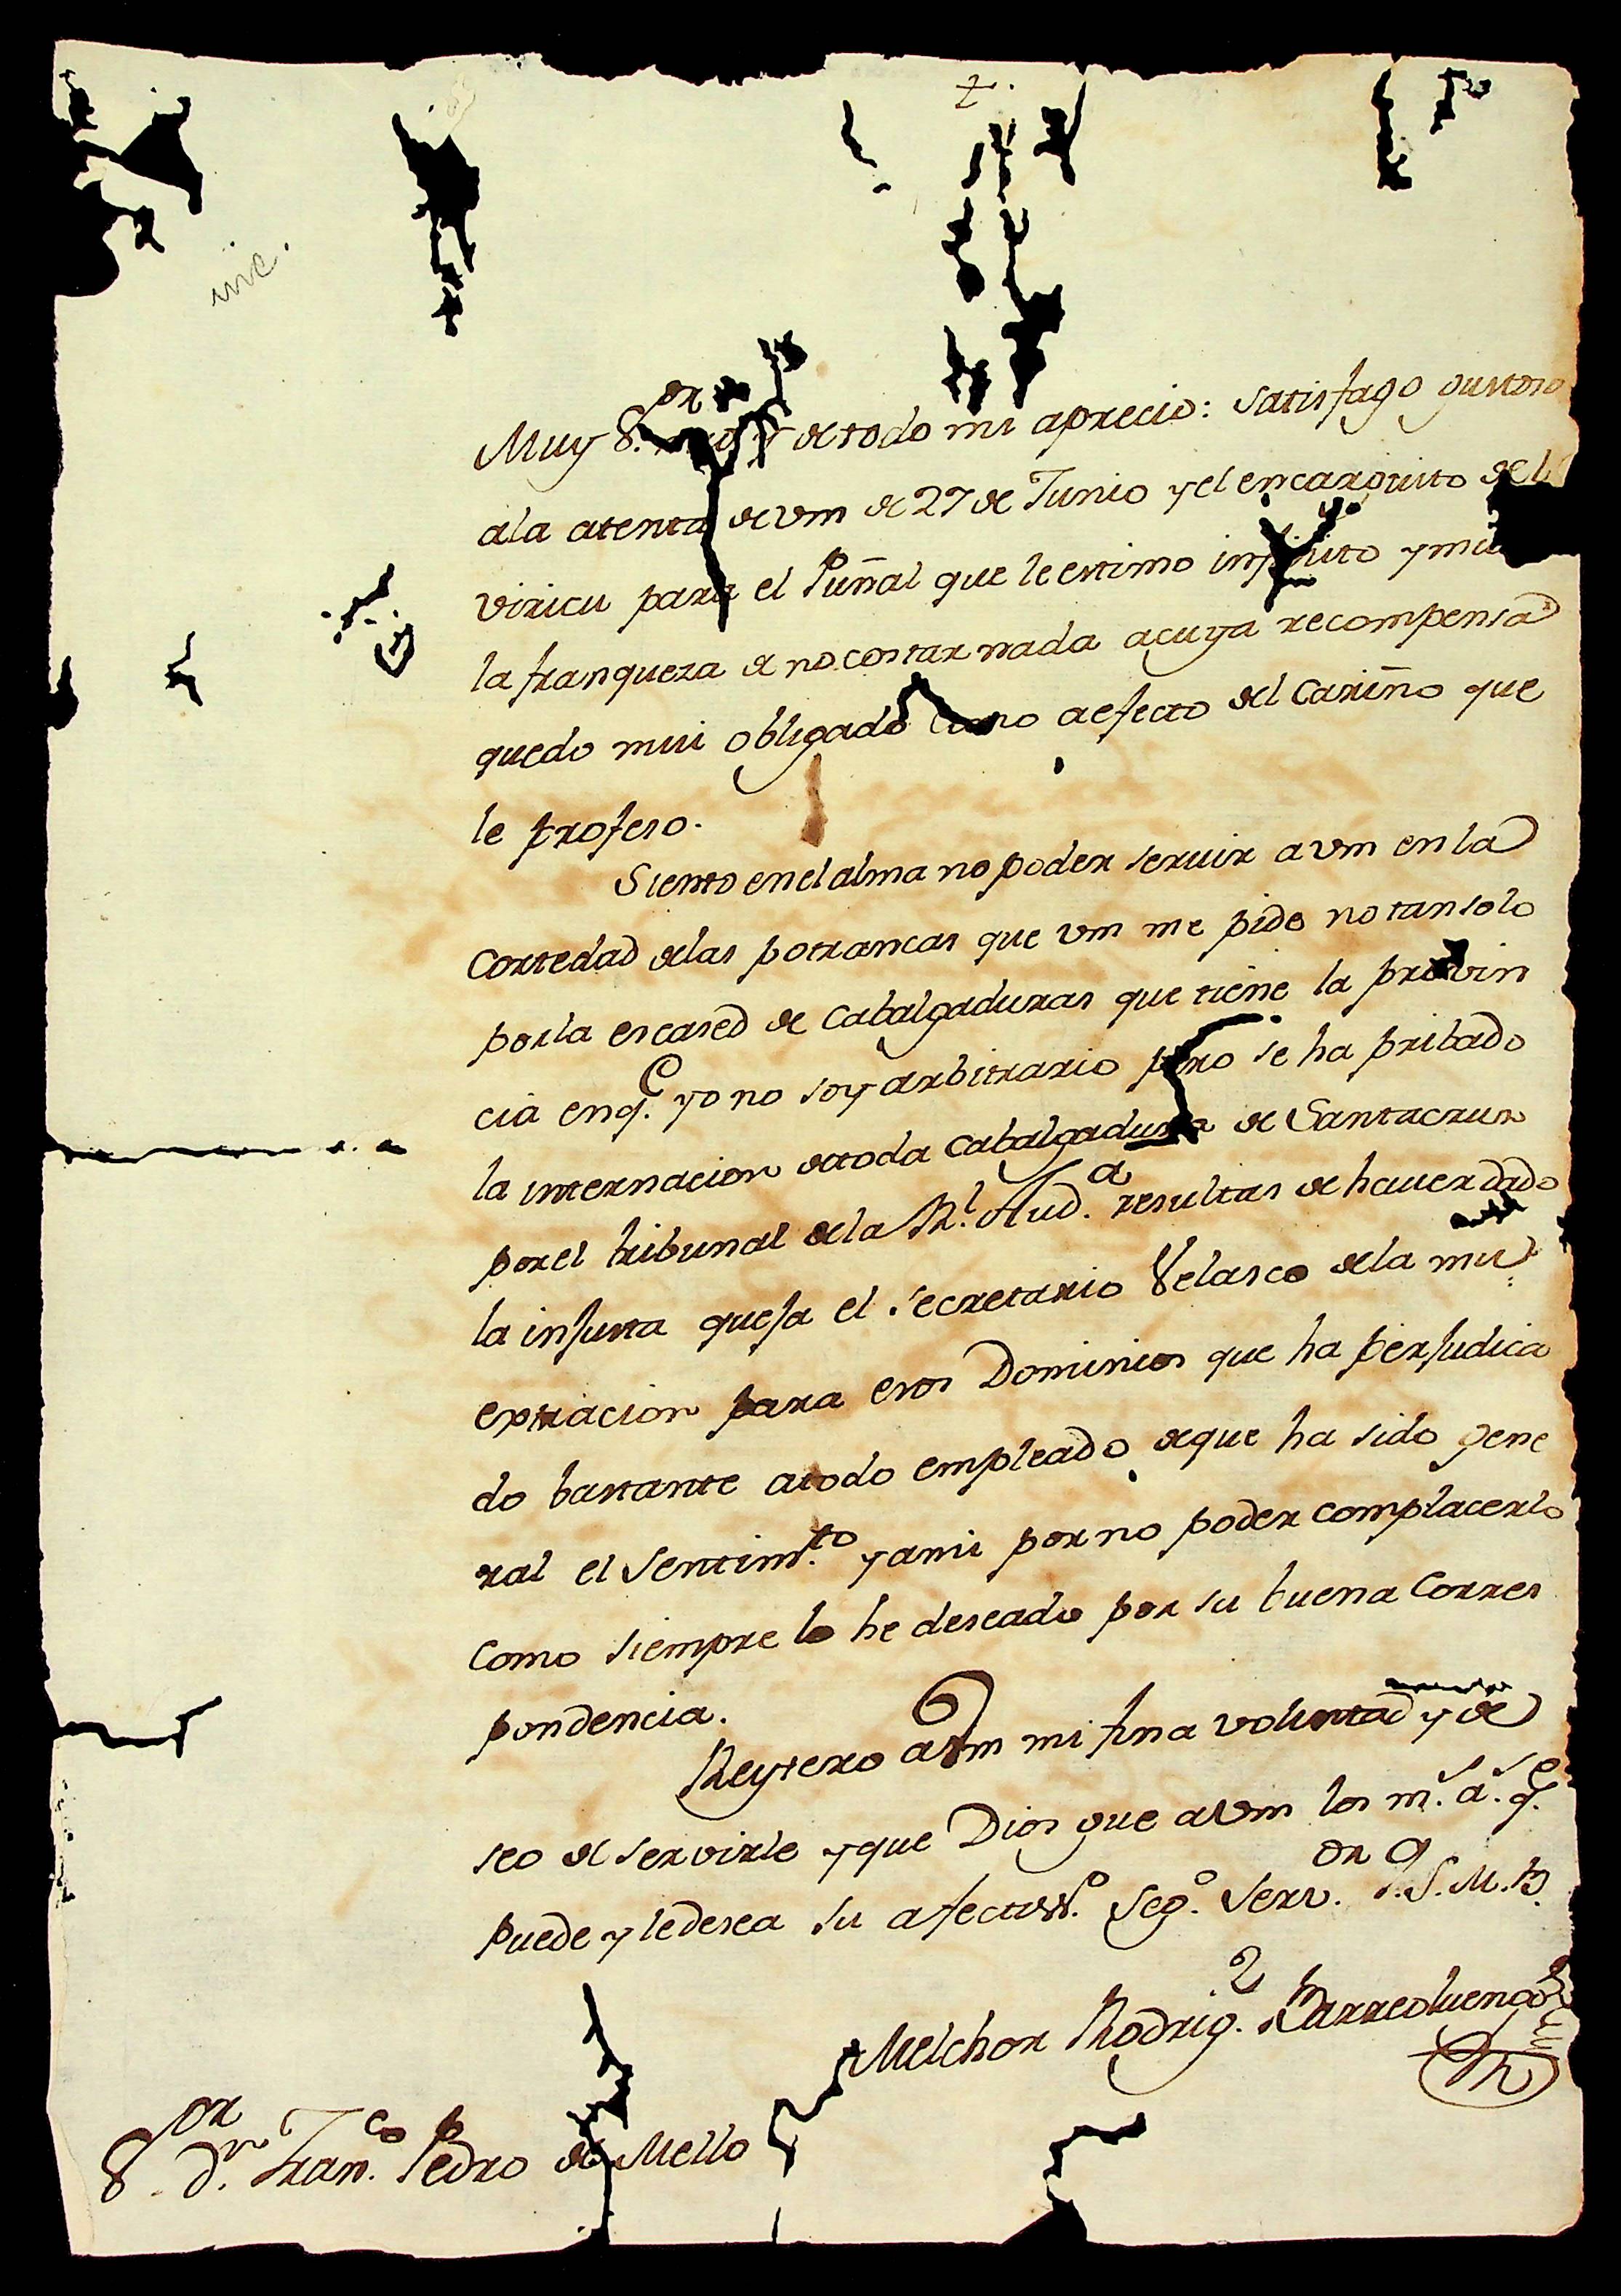 inc.
Muy S.or mio y de todo mi aprecio: satisfago gustoso
ala atenta de vm de 27 de Junio y el encarguito del
viricu para el Puñal que le estimo infinito y mas
la franqueza de no costar nada a cuya recompensa
quedo mui obligado como a efecto del Cariño que
le profeso.
Siento en el alma no poder seruir a vm en la
cortedad delas potrancas que vm me pide no tan solo
por la escased de Cabalgaduras que tiene la provin
cia en q.e yo no soy arbitrario pero se ha pribado
la internacion de toda Cabalgadura de Santacruz
por el tribunal dela R.l Aud.a resultas de hauer dado
la injusta queja el Secretario Velasco dela mu
extracion para esos Dominios que ha perjudica
do bastante a todo empleado de que ha sido gene
ral el sentim.to y a mi por no poder complacerlo
como siempre lo he deseado por su buena Corres
pondencia.
Reytero a Vm mi fina voluntad y de
seo de servirle y que Dios gue a Vm los m.s a.s q.e
puede y le desea su afectiss.o Seg.o Serv.or q. S.M.B.
Melchor Rodrig.z Barreoluengo
S.or d.n Fran.co Pedro de Mello